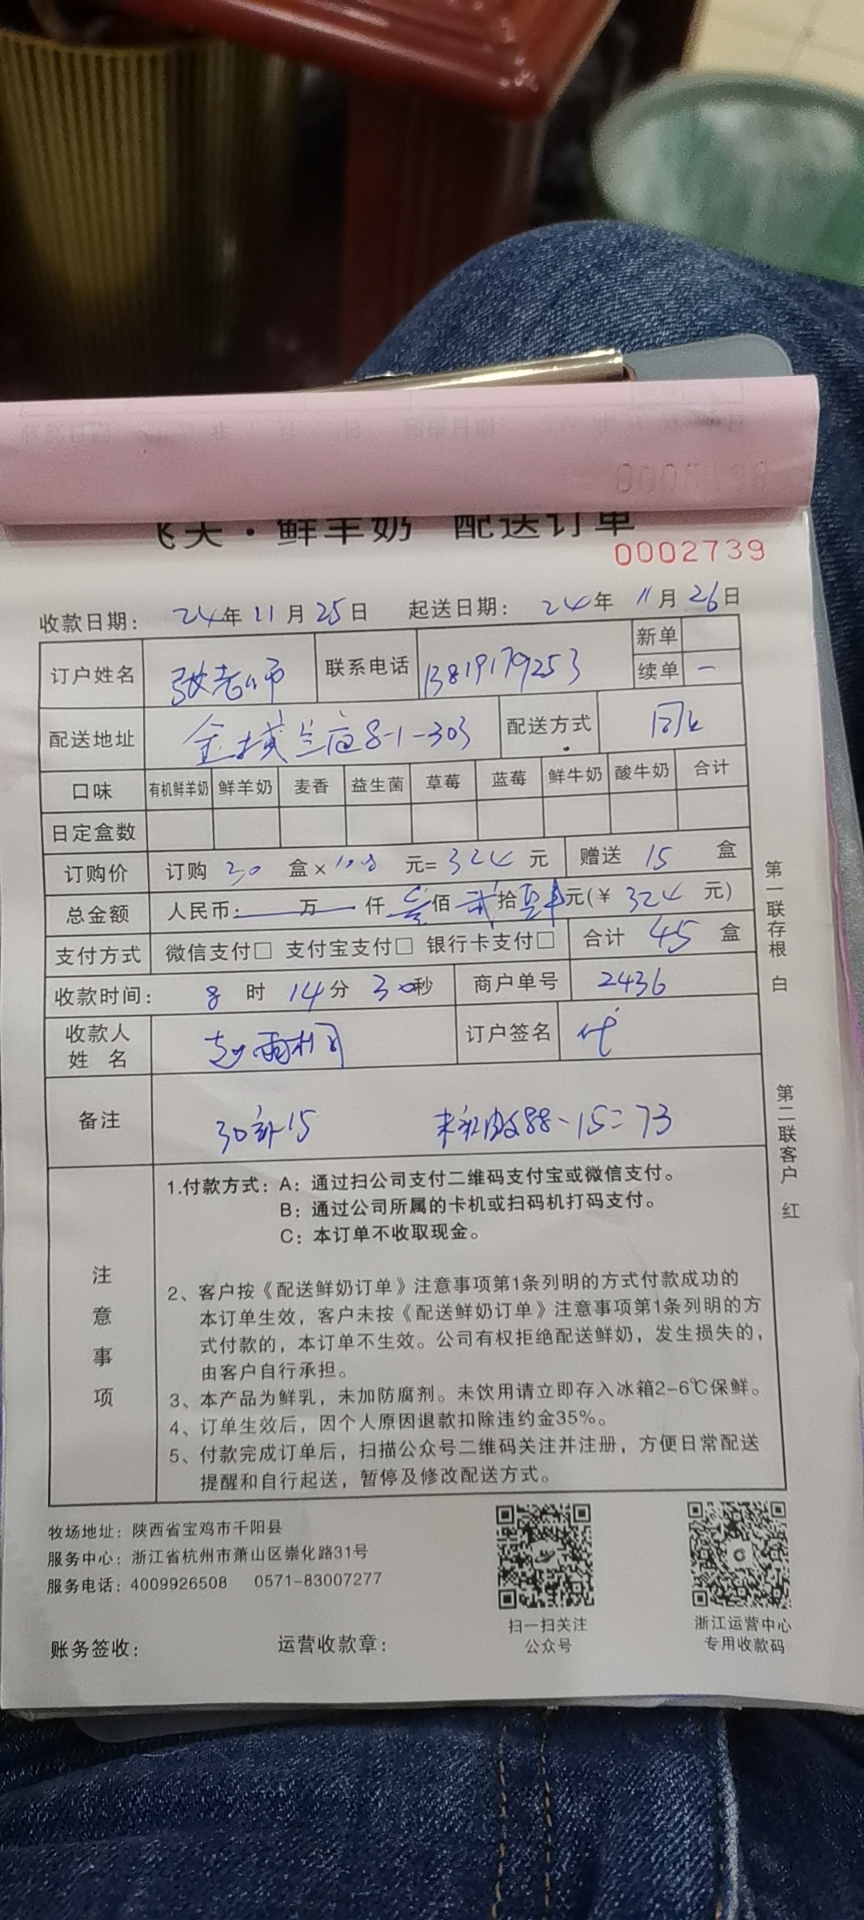 飞天·鲜羊奶 配送订单
0002739
收款日期: 24年11月25日 起送日期: 24年11月26日
订户姓名 张老师 联系电话 13819179253 新单
续单 一
配送地址 金城兰庭8-1-303 配送方式
口味 有机鲜羊奶 鲜羊奶 麦香 益生菌 草莓 蓝莓 鲜牛奶 酸牛奶 合计
日定盒数
订购价 订购 30 盒×10.8 元=324元 赠送 15 盒
总金额 人民币: 万 仟 叁佰 贰拾 肆元(¥ 324 元)
支付方式 微信支付□ 支付宝支付□ 银行卡支付□ 合计 45 盒
收款时间: 8 时 14分 30秒 商户单号 2436
收款人
姓 名 订户签名 代
备注 30新15 88-15=73
注意事项
1.付款方式: A: 通过扫公司支付二维码支付宝或微信支付。
B: 通过公司所属的卡机或扫码机打码支付。
C: 本订单不收取现金。
2、客户按《配送鲜奶订单》注意事项第1条列明的方式付款成功的
本订单生效，客户未按《配送鲜奶订单》注意事项第1条列明的方
式付款的，本订单不生效。公司有权拒绝配送鲜奶，发生损失的，
由客户自行承担。
3、本产品为鲜乳，未加防腐剂。未饮用请立即存入冰箱2-6℃保鲜。
4、订单生效后，因个人原因退款扣除违约金35%。
5、付款完成订单后，扫描公众号二维码关注并注册，方便日常配送
提醒和自行起送，暂停及修改配送方式。
第一联存根 白
第二联客户 红
牧场地址: 陕西省宝鸡市千阳县
服务中心: 浙江省杭州市萧山区崇化路31号
服务电话: 4009926508 0571-83007277
扫一扫关注
公众号
浙江运营中心
专用收款码
账务签收: 运营收款章: